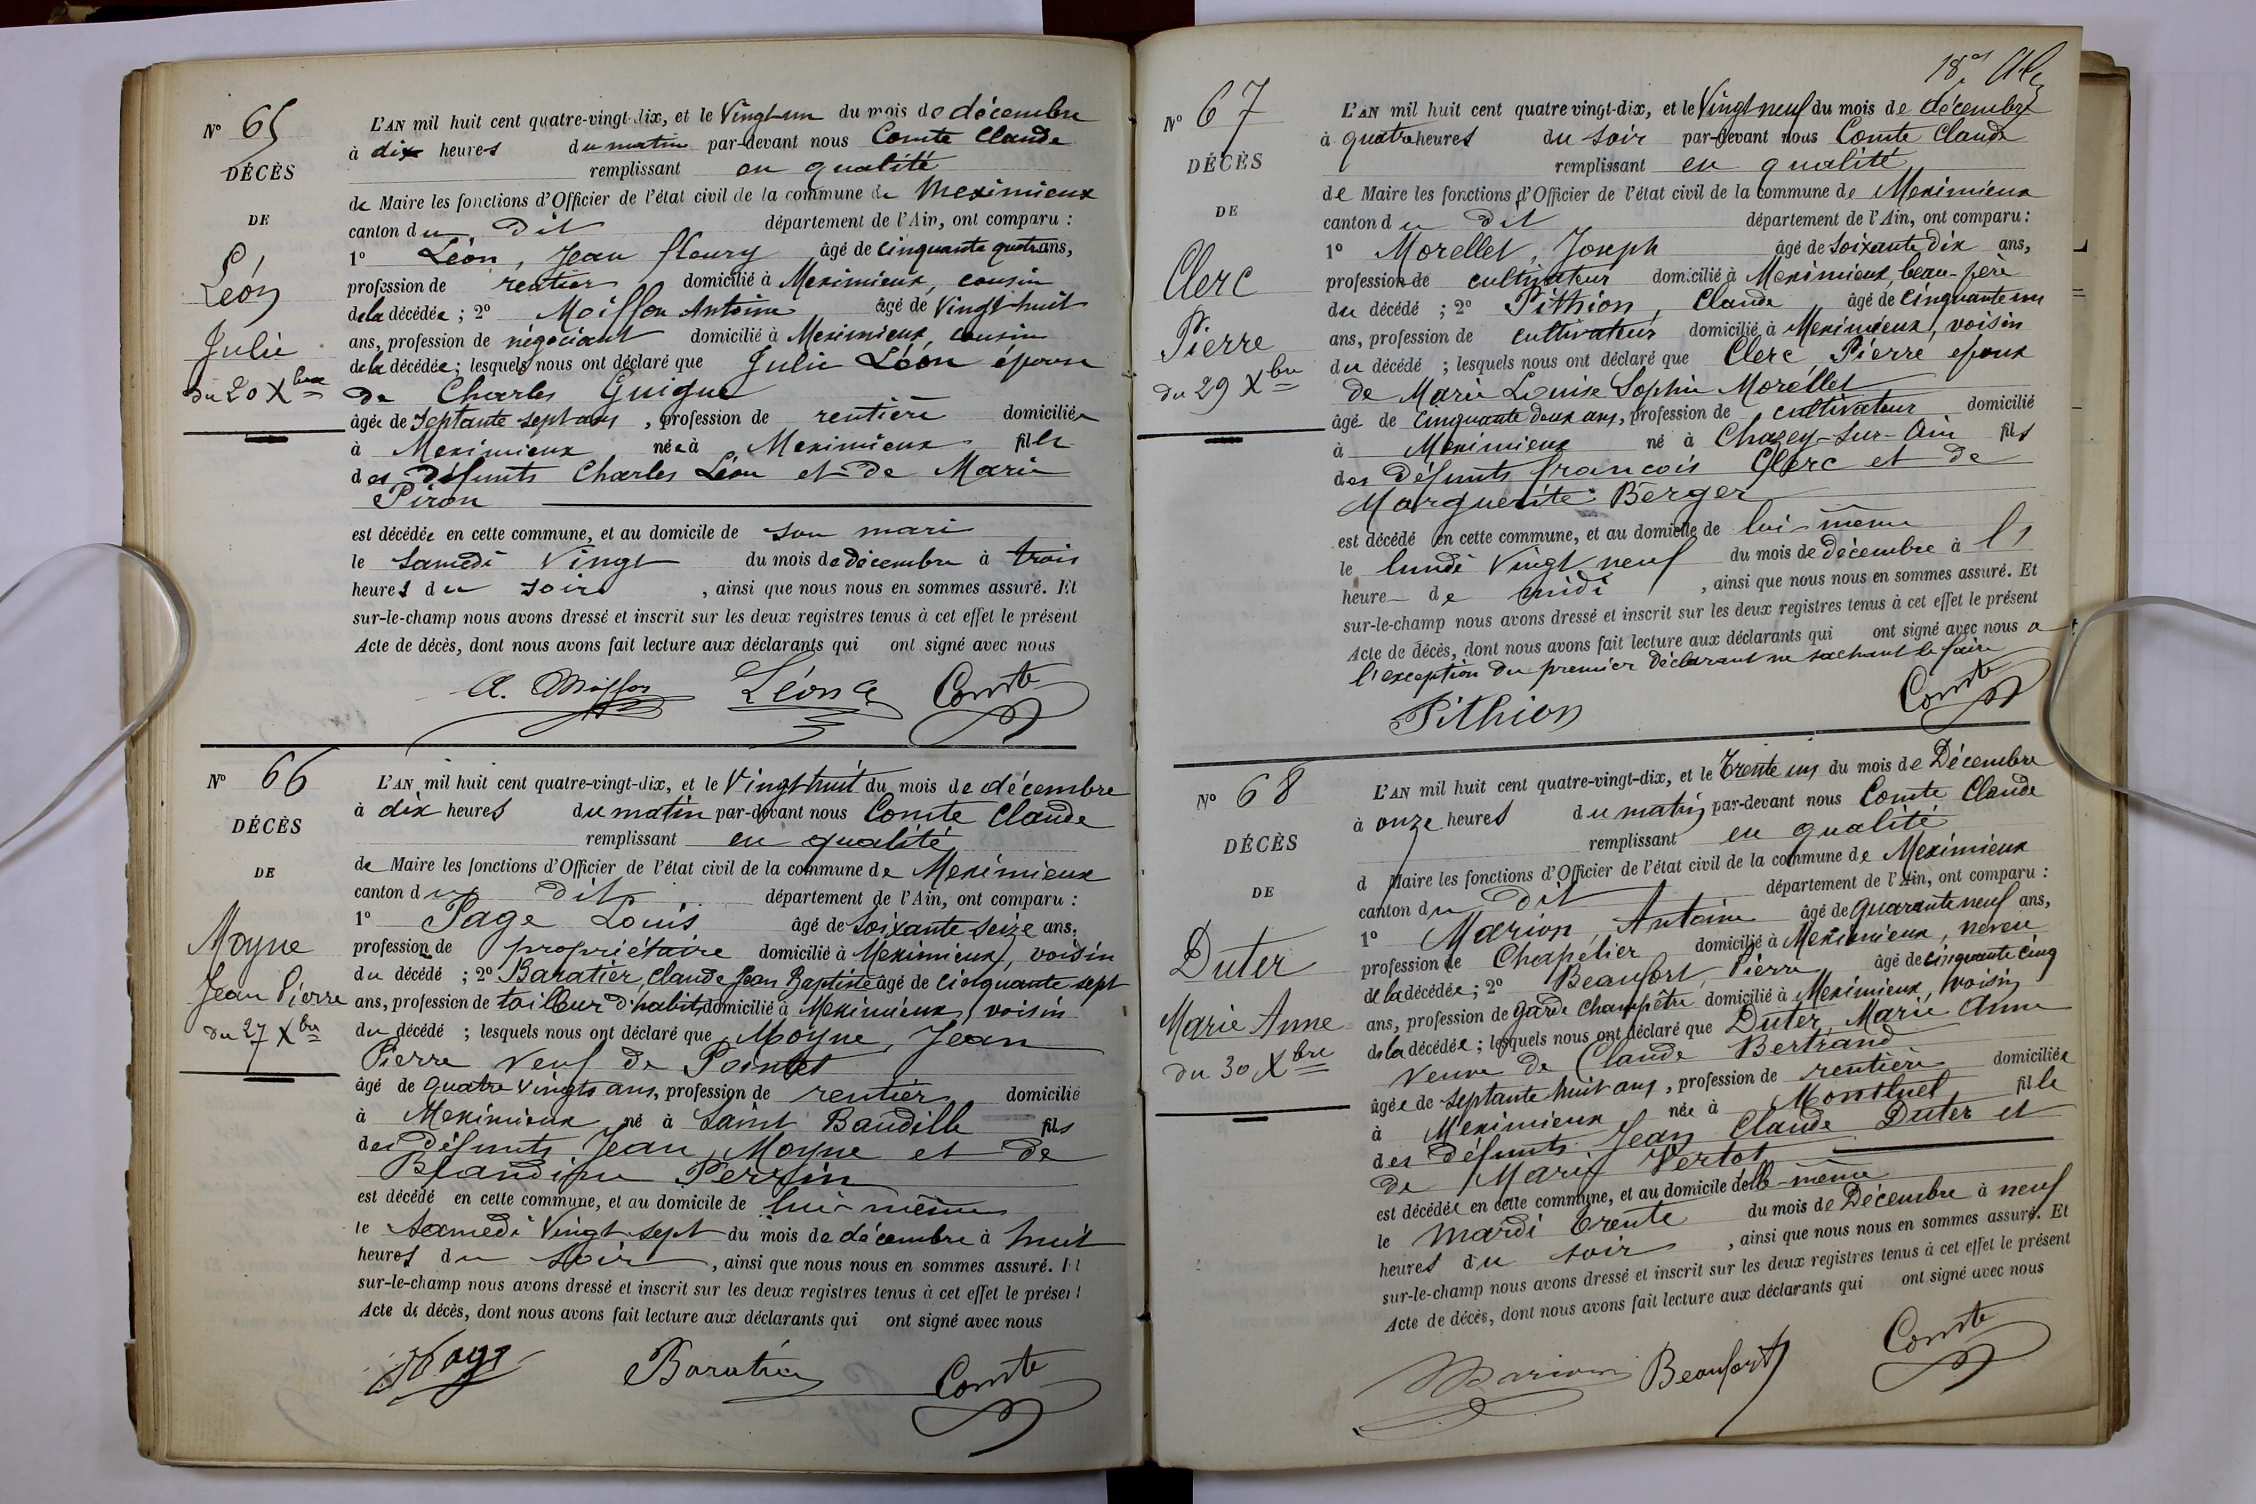 Nº 65
DÉCÈS
DE
Léon
Julie
du 20 Xbre
L'AN mil huit cent quatre-vingt-dix, et le Vingt un du mois de décembre
à dix heures du matin par-devant nous Comte Claude
remplissant en qualité
de Maire les fonctions d'Officier de l'état civil de la commune de Meximieux
canton du dit département de l'Ain, ont comparu :
1º Léon, Jean fleury âgé de cinquante quatre ans,
profession de rentier domicilié à Meximieux, cousin
de la décédée ; 2º Moiffon Antoine âgé de Vingt huit
ans, profession de négociant domicilié à Meximieux, cousin
de la décédée ; lesquels nous ont déclaré que Julie Léon épouse
de Charles Guigue
âgée de Septante sept ans, profession de rentière domiciliée
à Meximieux née à Meximieux fille
des défunts Charles Léon et de Marie
Piron
est décédée en cette commune, et au domicile de son mari
le Samedi Vingt du mois de décembre à trois
heures du soir, ainsi que nous nous en sommes assuré. Et
sur-le-champ nous avons dressé et inscrit sur les deux registres tenus à cet effet le présent
Acte de décès, dont nous avons fait lecture aux déclarants qui ont signé avec nous
A. Moiffon Léon Comte
Nº 66
DÉCÈS
DE
Moyne
Jean Pierre
du 27 Xbre
L'AN mil huit cent quatre-vingt-dix, et le Vingt huit du mois de décembre
à dix heures du matin par-devant nous Comte Claude
remplissant en qualité
de Maire les fonctions d'Officier de l'état civil de la commune de Meximieux
canton du dit département de l'Ain, ont comparu :
1º Page Louis âgé de Soixante Seize ans,
profession de propriétaire domicilié à Meximieux, voisin
du décédé ; 2º Baratier, Claude Jean Baptiste âgé de Cinquante sept
ans, profession de tailleur d'habits domicilié à Meximieux, voisin
du décédé ; lesquels nous ont déclaré que Moyne, Jean
Pierre veuf de Pointet
âgé de quatre vingts ans, profession de rentier domicilié
à Meximieux né à Saint Baudille fils
des défunts Jean Moyne et de
Blandine Perrin
est décédé en cette commune, et au domicile de lui-même
le Samedi Vingt sept du mois de décembre à huit
heures du soir, ainsi que nous nous en sommes assuré. Et
sur-le-champ nous avons dressé et inscrit sur les deux registres tenus à cet effet le présent
Acte de décès, dont nous avons fait lecture aux déclarants qui ont signé avec nous
Page Baratier Comte
18e
Nº 67
DÉCÈS
DE
Clerc
Pierre
du 29 Xbre
L'AN mil huit cent quatre vingt-dix, et le Vingt neuf du mois de décembre
à quatre heures du soir par-devant nous Comte Claude
remplissant en qualité
de Maire les fonctions d'Officier de l'état civil de la commune de Meximieux
canton du dit département de l'Ain, ont comparu :
1º Morellet, Joseph âgé de soixante dix ans,
profession de cultivateur domicilié à Meximieux, beau-père
du décédé ; 2º Pithion, Claude âgé de cinquante un
ans, profession de cultivateur domicilié à Meximieux, voisin
du décédé ; lesquels nous ont déclaré que Clerc Pierre époux
de Marie Louise Sophie Morellet
âgé de cinquante deux ans, profession de cultivateur domicilié
à Meximieux né à Chazey-sur-Ain fils
des défunts françois Clerc et de
Marguerite Berger
est décédé en cette commune, et au domicile de lui-même
le lundi Vingt neuf du mois de décembre à l'1
heure de midi, ainsi que nous nous en sommes assuré. Et
sur-le-champ nous avons dressé et inscrit sur les deux registres tenus à cet effet le présent
Acte de décès, dont nous avons fait lecture aux déclarants qui ont signé avec nous a
l'exception du premier déclarant ne sachant le faire
Pithion Comte
Nº 68
DÉCÈS
DE
Duter
Marie Anne
du 30 Xbre
L'AN mil huit cent quatre-vingt-dix, et le Trente un du mois de Décembre
à onze heures du matin par-devant nous Comte Claude
remplissant en qualité
d Maire les fonctions d'Officier de l'état civil de la commune de Meximieux
canton du dit département de l'Ain, ont comparu :
1º Marion, Antoine âgé de quarante neuf ans,
profession de Chapelier domicilié à Meximieux, neveu
de la décédée ; 2º Beaufort, Pierre âgé de cinquante cinq
ans, profession de garde Champêtre domicilié à Meximieux, voisin
de la décédée ; lesquels nous ont déclaré que Duter, Marie Anne
veuve de Claude Bertrand
âgée de septante huit ans, profession de rentière domiciliée
à Meximieux née à Montluel fille
des défunts Jean Claude Duter et
de Marie Vertot
est décédée en cette commune, et au domicile d'elle-même
le Mardi trente du mois de Décembre à neuf
heures du soir, ainsi que nous nous en sommes assuré. Et
sur-le-champ nous avons dressé et inscrit sur les deux registres tenus à cet effet le présent
Acte de décès, dont nous avons fait lecture aux déclarants qui ont signé avec nous
Marion Beaufort Comte